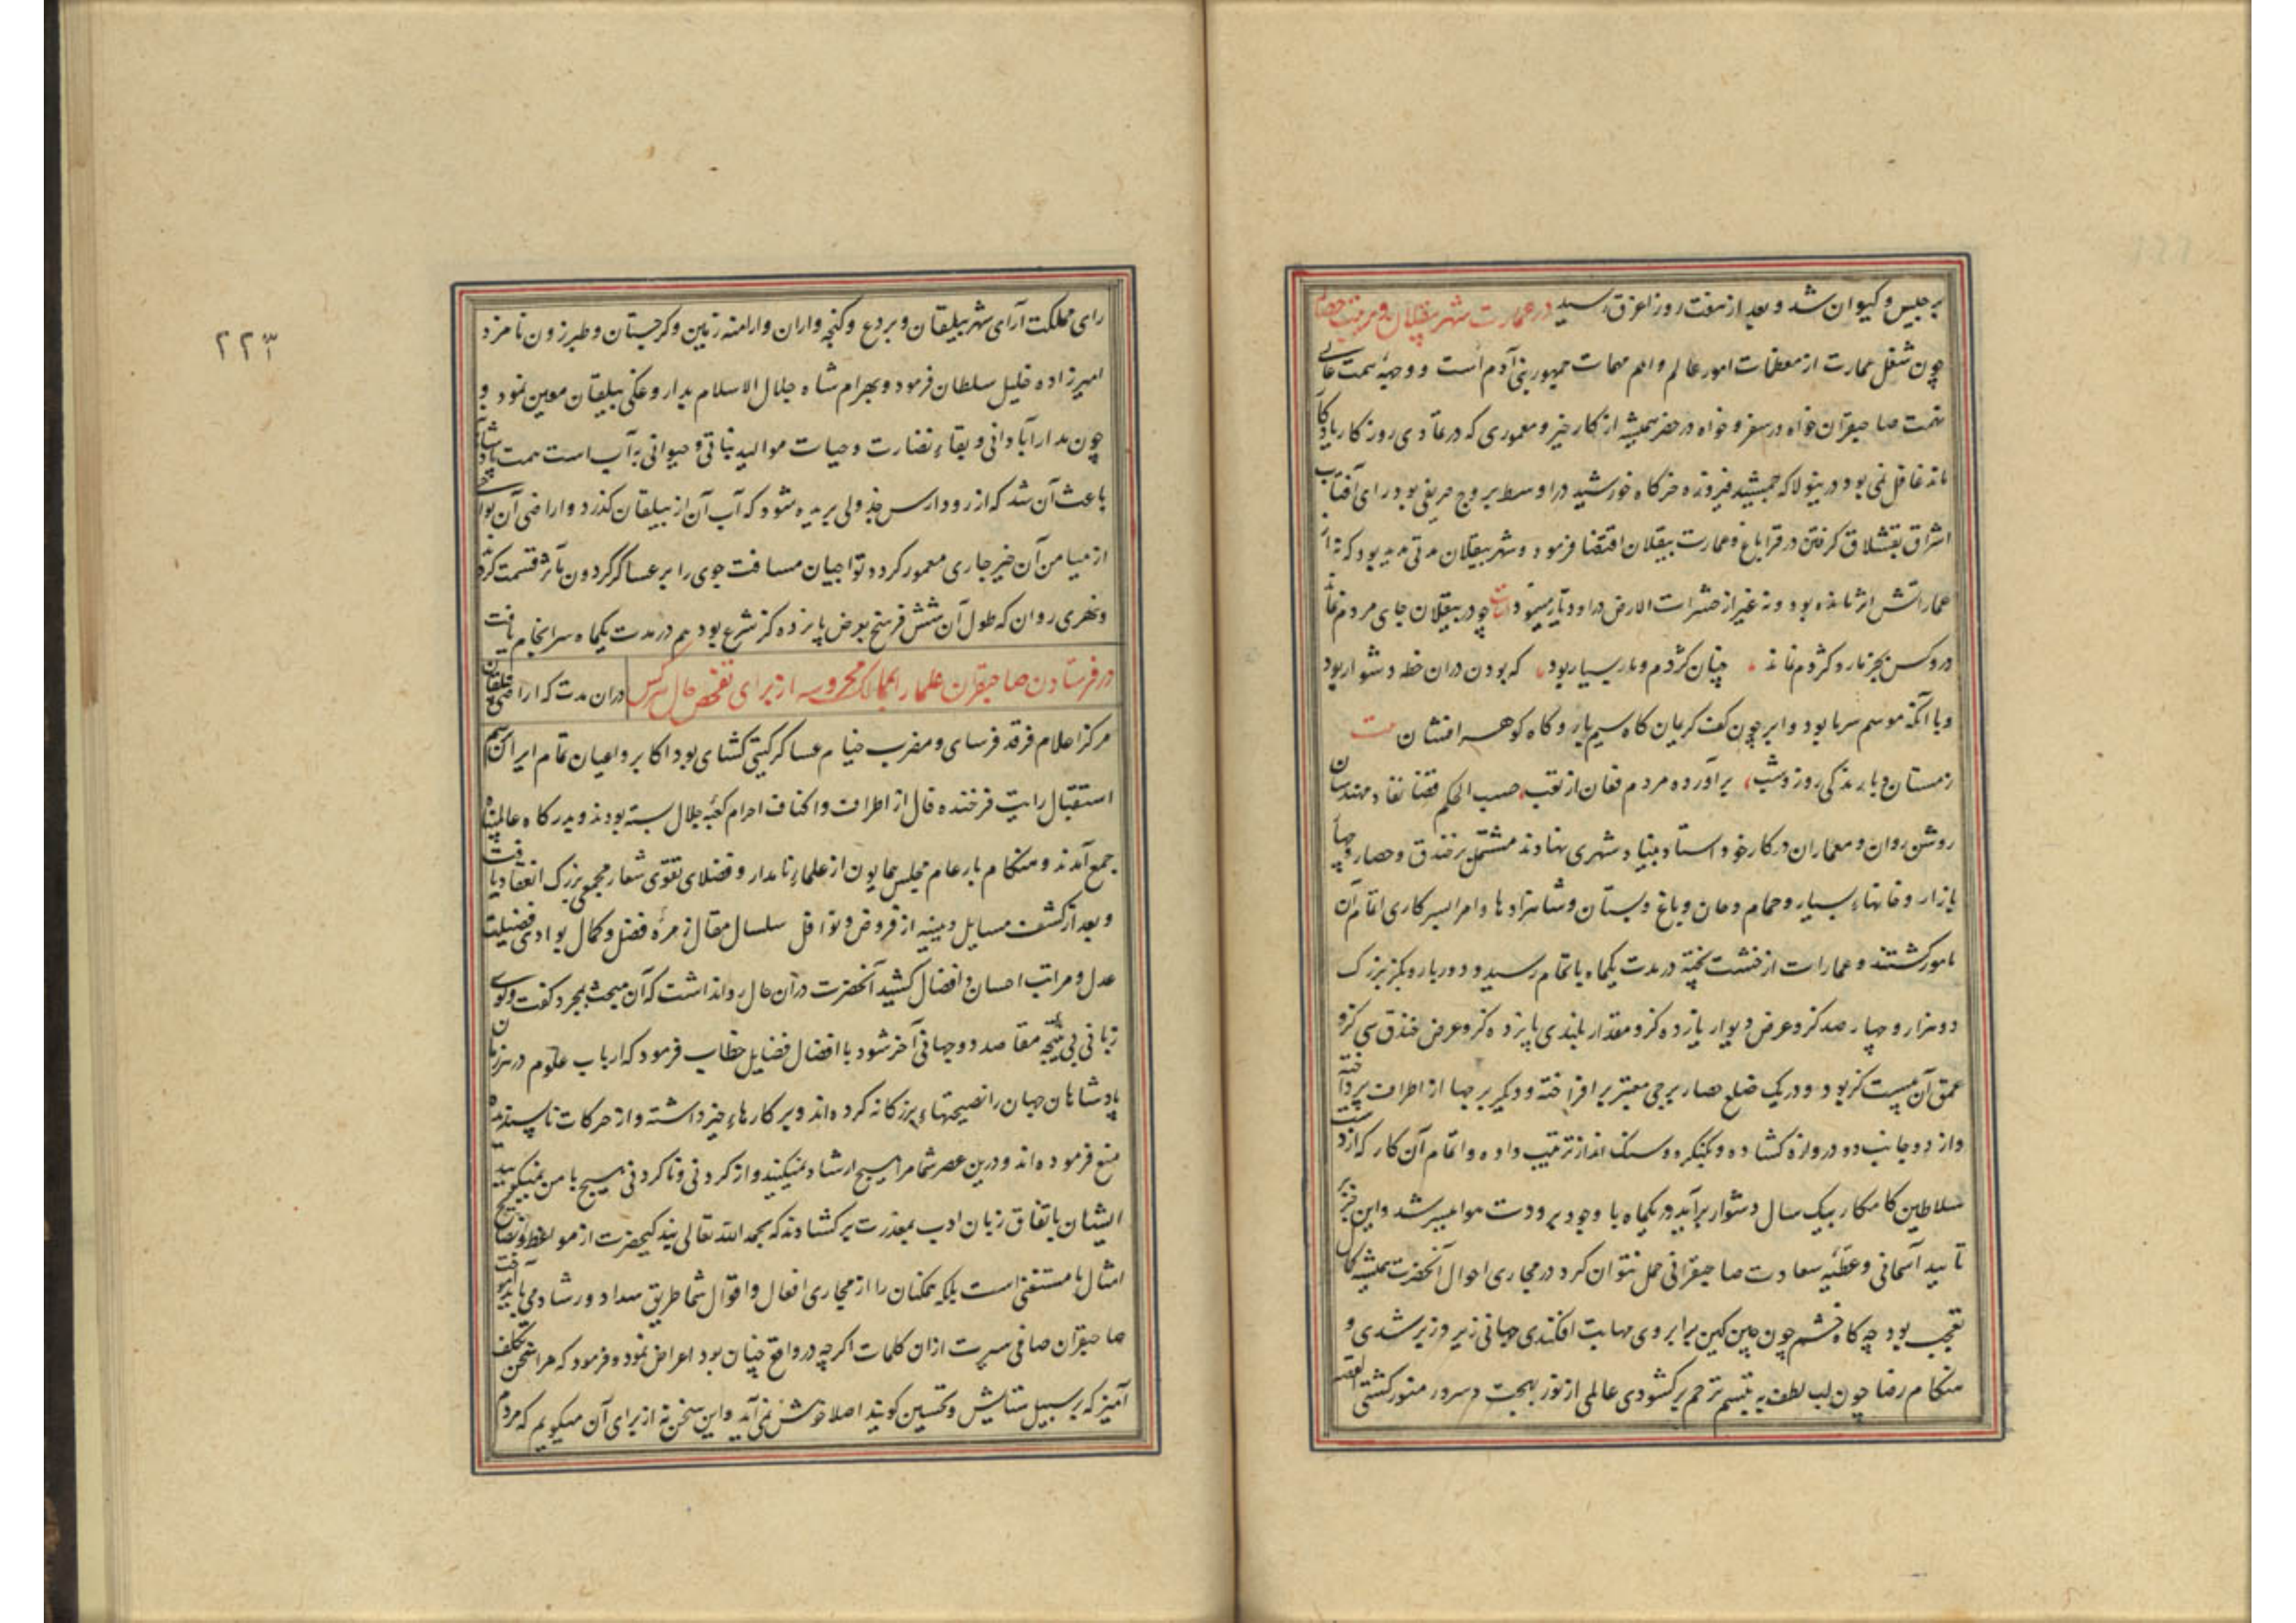 برجیس و کیوان شد و بعد از هفت روز باغرق رسید در عمارت شهر بیلقان و مرمت حصار
چون شغل عمارت از معظمات امور عالم و اهم مهمات جمهور بنی آدم است و وجههٔ همت عالی
نهمت صاحبقران خواه در سفر و خواه در حضر همیشه از کار خیر و معموری که در تمادی روزکار یادکار
ماند غافل نمی بود درینولا که جمشید فیروزه خرکاه خورشید در اواسط بروج خریفی بود رای آفتاب
اشراق بقشلاق کرفتن در قراباغ و عمارت بیقلان اقتضا فرمود و شهر بیقلان مدتی مدید بود که نه از
عماراتش اثر مانده بود و نه غیر از حشرات الارض در او دیار مینمود ابیات چو در بیقلان جای مردم نماند
درو کس بجز مار و کژدم نماند چنان کژدم و مار بسیار بود که بودن دران خطه دشوار بود
و با آنکه موسم سرما بود و ابر چون کف کریمان کاه سیم بار و کاه کوهر افشان بیت
زمستان و بارندکی روز و شب برآورده مردم فغان از تعب حسب الحکم قضا نفاد مهندسان
روشن روان و معماران در کار خود استاد بنیاد شهری نهادند مشتمل بر خندق و حصار و چهار
بازار و خانهاء بسیار و حمام و خان و باغ و بستان و شاهزادها و امرا بسرکاری اتمام آن
مامور کشتند و عمارات از خشت پخته در مدت یکماه باتمام رسید و دور بارو بکز بزرک
دو هزار و چهار صد کز و عرض دیوار یازده کز و مقدار بلندی پانزده کز و عرض خندق سی کز و
عمق آن بیست کز بود و در یک ضلع حصار برجی معتبر برافراخته و دیکر برجها از اطراف پرداخته
و از دو جانب دو دروازه کشاده و کنکره و سنک انداز ترتیب داده و اتمام آن کار که از دست
سلاطین کامکار بیک سال دشوار برآید در یکماه با وجود برودت هوا میسر شد و این جز بر
تایید آسمانی و عطیه سعادت صاحبقرانی حمل نتوان کرد در مجاری احوال آنحضرت همیشه محل
تعجب بود چه کاه خشم چون چین کین بر ابروی مهابت افکندی جهانی زیر و زبر شدی و
هنکام رضا چون لب لطف به تبسم ترحم برکشودی عالمی از نور بهجت و سرور منور کشتی القصه
۲۲۳
رای مملکت آرای شهر بیلقان و بردع و کنجه و اران و ارامنه زمین و کرجستان و طبرزون نامزد
امیرزاده خلیل سلطان فرمود و بهرام شاه جلال الاسلام بداروغکی بیلقان معین نمود و
چون مدار آبادانی و بقاء نضارت و حیات موالید نباتی و حیوانی به آب است همت پادشاه
باعث آن شد که از رود ارس جدولی بریده شود که آب آن از بیلقان کذرد و اراضی آن نواحی
از میامن آن خیر جاری معمور کردد تواجیان مسافت جوی را بر عساکر کردون مآثر قسمت کرده
و نهری روان که طول آن شش فرسخ بعرض پانزده کز شرع بود هم در مدت یکماه سرانجام یافت
در فرستادن صاحبقران علما را بممالک محروسه از برای تفحص حال هرکس دران مدت که اراضی بیلقان
مرکز اعلام فرقد فرسای و مضرب خیام عساکر کیتی کشای بود اکابر و اعیان تمام ایران برسم
استقبال رایت فرخنده فال از اطراف و اکناف احرام کعبه جلال بسته بودند و بدرکاه عالم پناه
جمع آمدند و هنکام بار عام مجلس همایون از علماء نامدار و فضلای تقوی شعار مجمعی بزرک انعقاد یافت
و بعد از کشف مسایل دینیه از فروض و نوافل سلسال مقال زمرهٔ فضل و کمال بوادی فضیلت
عدل و مراتب احسان و افضال کشید آنحضرت در آن حال روا نداشت که آن مبحث بمجرد کفت و کوی
زبانی بی نتیجه مقاصد دو جهانی آخر شود با افضال فضایل خطاب فرمود که ارباب علوم در هر زمان
پادشاهان جهان را نصیحتهاء بزرکانه کرده اند و بر کارهاء خیر داشته و از حرکات ناپسندیده
منع فرموده اند و درین عصر شما مرا هیچ ارشاد نمیکنید و از کردنی و ناکردنی هیچ با من نمیکویید
ایشان باتفاق زبان ادب بمعذرت برکشادند که بحمد الله تعالی بندکیحضرت از مواعظ و نصایح
امثال ما مستغنی است بلکه همکنان را از مجاری افعال و اقوال شما طریق سداد و رشاد می باید آموخت
صاحبقران صافی سیرت ازان کلمات اکرچه در واقع چنان بود اعراض نمود و فرمود که مرا سخن تکلف
آمیز که بر سبیل ستایش و تحسین کویند اصلا خوش نمی آید و این سخن نه از برای آن میکویم که مردم